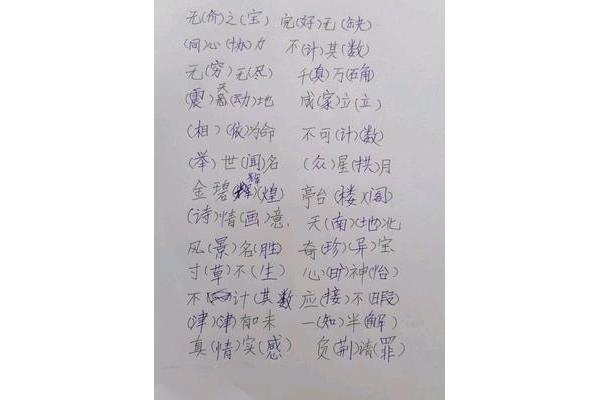 无(价)之(宝) 完(好)无(缺)
(同)心(协)力 不(计)其(数)
无(穷)无(尽) 千(真)万(确)
(震)天(动)地 成(家)立(立)
(相)(依)为命 不可(计)(数)
(举)世(闻)名 (众)星(拱)月
金碧(辉)(煌) 亭台(楼)(阁)
(诗)情(画)意、 天(南)(地)北
风(景)名(胜) 奇(珍)(异)宝
寸(草)不(生) 心(旷)神(怡)
不计(其)数 应(接)不(暇)
(津)(津)有味 一(知)半(解)
真(情)实(感) 负(荆)请(罪)